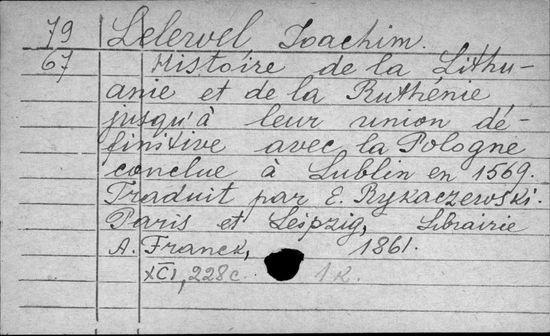 79 Lelewel Joachim.
67 Histoire de la Lithu-
anie et de la Ruthénie
jusqu'à leur union dé-
finitive avec la Pologne
conclue à Lublin en 1569.
Traduit par E. Rykaczewski.
Paris et Leipzig, Librairie
A. Franck, 1861.
XCI, 228 c. 1 k.